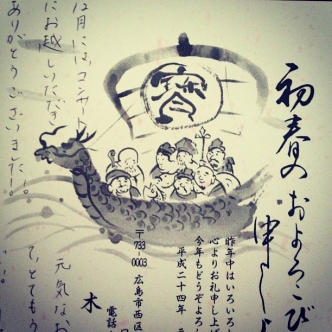 初春の
およろこび
申し上
昨年中はいろいろ
心よりお礼申し上げ
今年もどうぞよろ
平成二十四年
〒733
0003
広島市西区
木
電話
寳
12月にはコンサート
にお越しいただき
ありがとうございました!!
元気なお